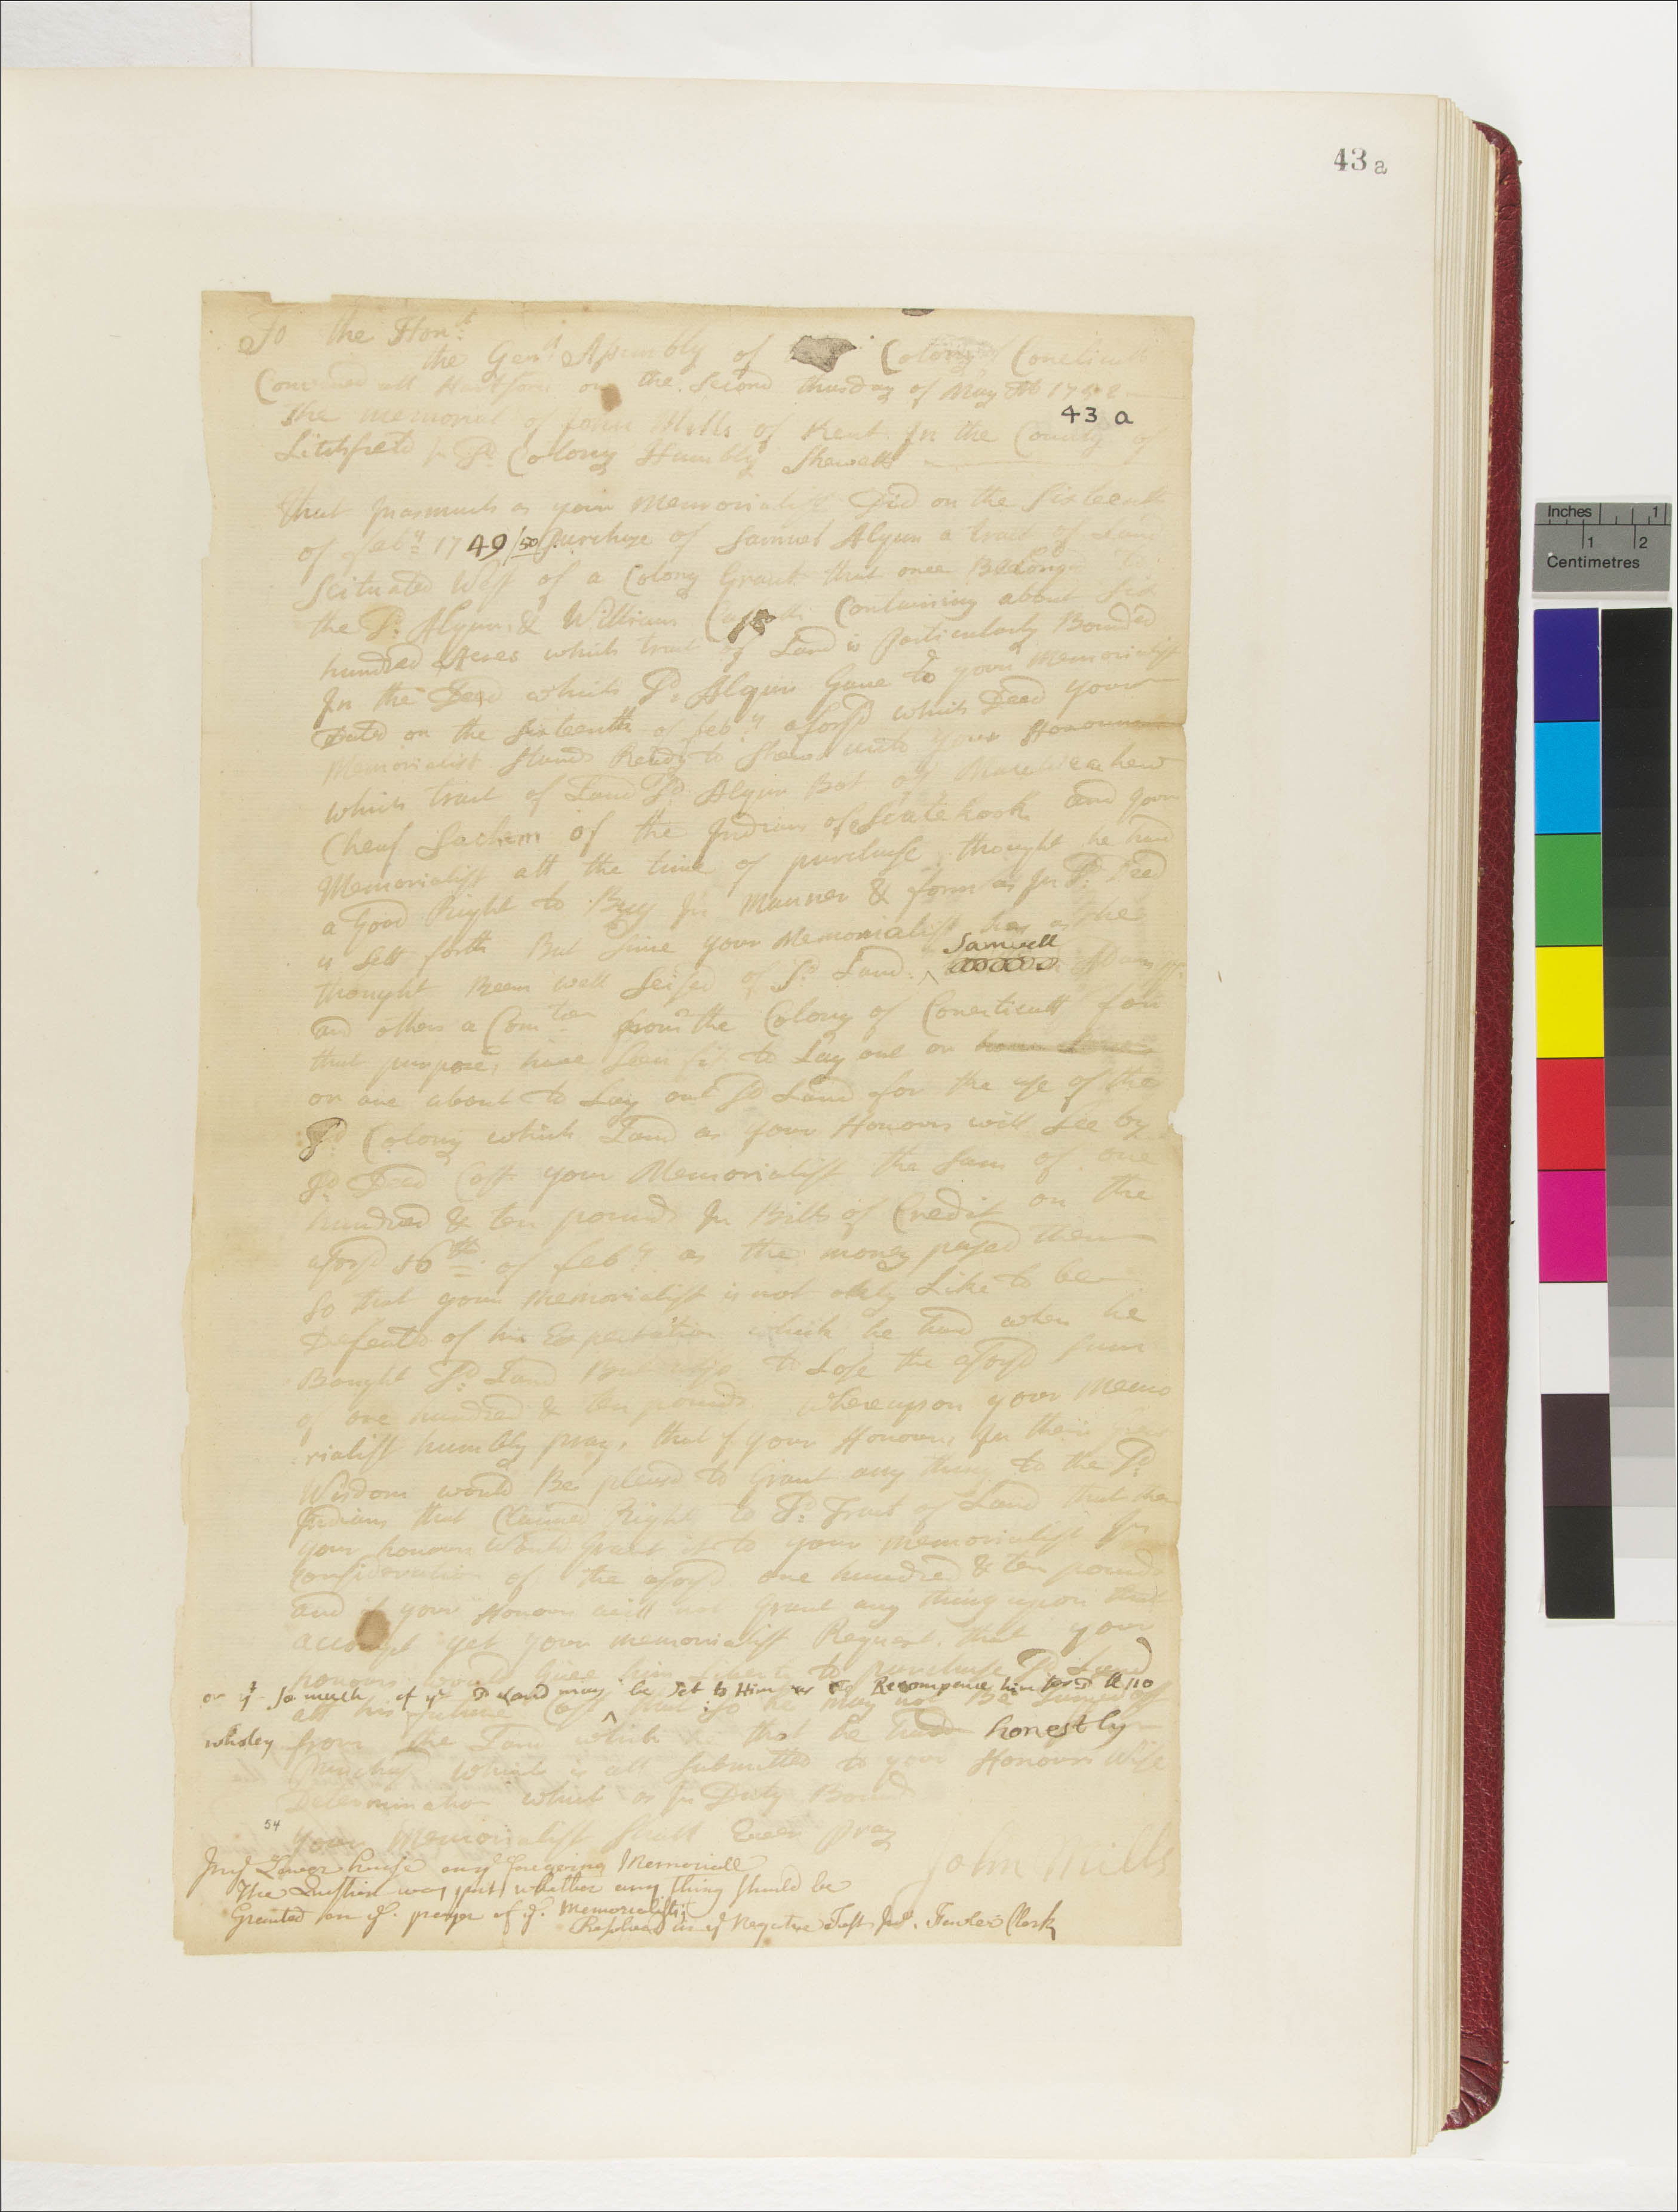 43 a
To the Honᵗ
the Genˡˡ Assembly of Colony of Conecticutt
Convened att Hartford on the Second thusday of May AD 1752
43 a
The memorial of John Mills of Kent In the County of
Litchfield in Sᵈ Colony Humbly Sheweth
that Inasmuch as your memorialist Did on the Sixteenth
of febʸ 1749/50 purchase of Samuel Alger a tract of Land
Scituated West of a Colony Grant that once Belong to
the Sᵈ Alger & William Containing about Six
hundred Acres which tract of Land is particularly Bounded
In the Deed which Sᵈ Alger Gave to your Memorialist
Dated on the Sixteenth of febʸ aforsᵈ which Deed your
Memorialist Stands Ready to Shew unto your Honours
which tract of Land Sᵈ Alger Bot of Mauweehew
Cheaf Sachem of the Indians of Scatekook and your
Memorialist att the time of purchase thought he had
a Good Right to Buy In Manner & form as In Sᵈ Deed
is Sett forth But Since your Memorialist has as he
Samuell
thought Been well Seised of Sᵈ Land. ^ Adams
and others a Comᵗᵉᵉ from the Colony of Conecticutt for
that purpose, have Seen fit to Lay out or
or are about to Lay out Sᵈ Land for the use of the
Sᵈ Colony which Land as your Honours will See by
Sᵈ Deed Cost your Memorialist the Sum of one
hundred & ten pounds In Bills of Credit on the
aforsᵈ 16ᵗʰ of febʸ as the money passed then
So that your memorialist is not only Like to be
Defeated of his Expectation which he had when he
Bought Sᵈ Land But also to Lose the aforsᵈ Sum
of one hundred & ten pounds whereupon your Memo
rialist humbly pray, that if your Honours, In their
Wisdom would Be pleased to Grant any thing to the Sᵈ
Indians that Claimed Right to Sᵈ Tract of Land that
your honours would Grant it to your memorialist In
Consideration of the aforsᵈ one hundred & ten pounds
and if your Honours will not Grant any thing upon that
account yet your memorialist Request, that your
honours would Give him Liberty to purchase Sᵈ Land
or yᵗ So much of yᵉ Sᵈ Land may be Set to Him as to Recompence him for Sᵈ £110
att his Cost ^ that So he may not Be turned off
wholey from the Land which that he had honestly
Purchased which is all Submitted to your Honours Wise
Determination which as In Duty Bound
54
your Memorialist Shall Ever pray
John Mills
In yᵉ Lower house on yᵉ foregoing Memoriall
The Question was put whether any thing should be
Granted on yᵉ prayer of yᵉ Memorialist;
Resolved in yᵉ Negative Test Jnᵒ. Fowler Clerk